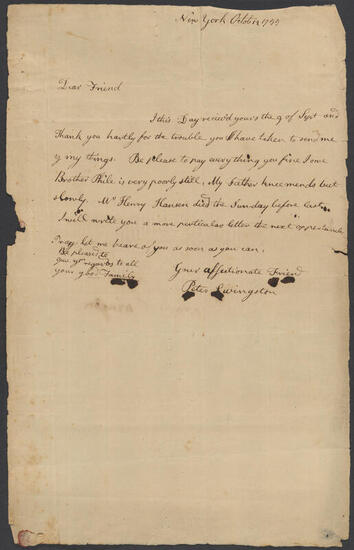 New York Octobr 1755
Dear Friend
I this Day reciev'd yours the 9 of Sept and
Thank you hartly for the trouble you have taken to send me
my things. Be please to pay every thing you find I owe
Brother Phile is very poorly still, My Father knee mends but
slowly. Mr Henry Hansen died the Sunday before last
I will write you a more particular letter the next
Pray let me heare of you as soon as you can.
Be pleased to
give my regards to all
your good Family
Your affectionate Friend
Peter Livingston